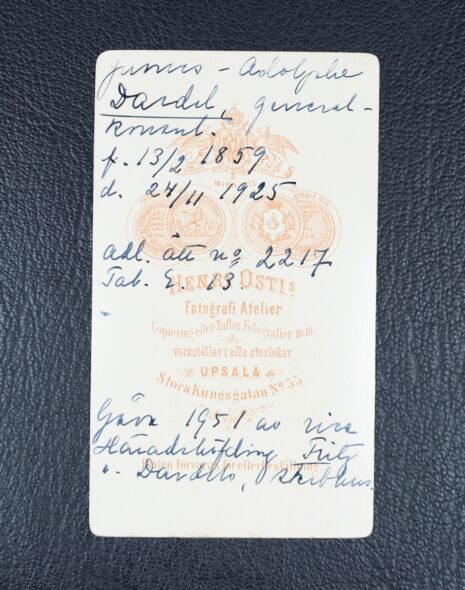 James-Adolphe
Dardel, general-
konsul.
f. 13/2 1859
d. 24/11 1925
WIEN
adl. ätt nº 2217
Tab. 13.
HENRI OSTIs
Fotografi Atelier
Copiering efter Taflor, Fotografier m.m.
verkställes i alla storlekar
UPSALA
Stora Kungsgatan No 55.
Gåva 1951 av vice
Häradshövding Fritz
v. Dardels,
Plåten förvaras för efterbeställning